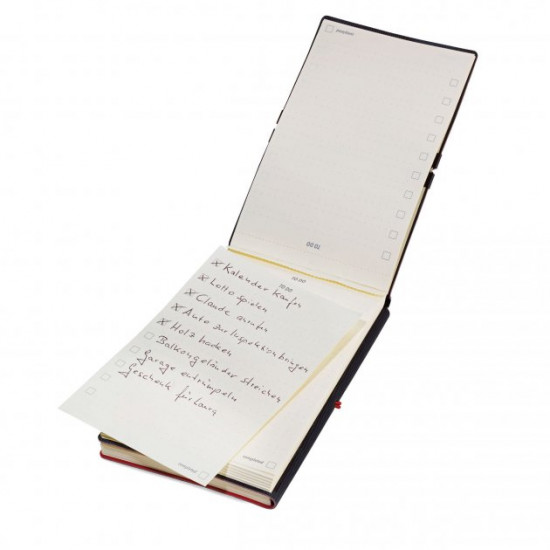 completed
Kalender kaufen
Lotto spielen
Claude anrufen
Auto zur Inspektion bringen
Holz hacken
Balkongeländer streichen
Garage entrümpeln
Geschenk für Laura
completed
completed